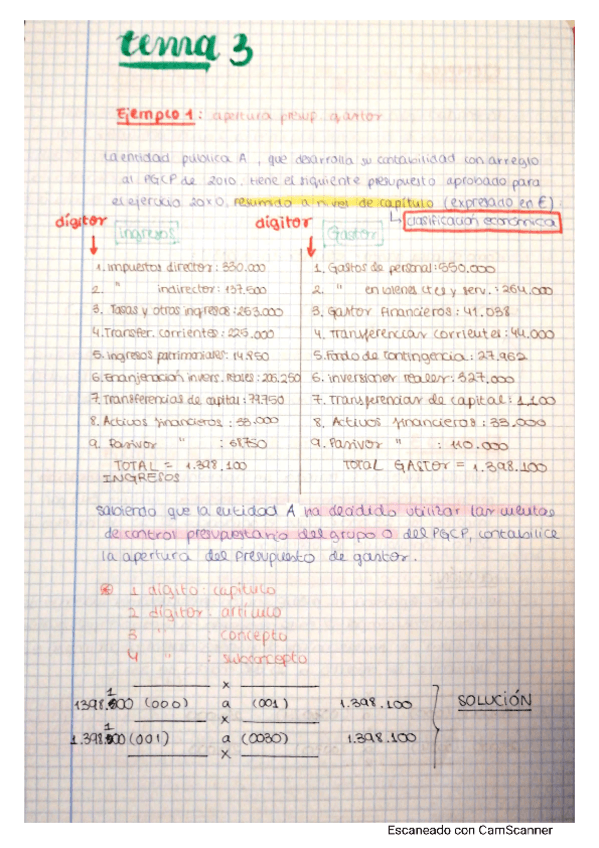 tema 3
Ejemplo 1: apertura presup. gastos
La entidad pública A, que desarrolla su contabilidad con arreglo
al PGCP de 2010, tiene el siguiente presupuesto aprobado para
el ejercicio 20x0, resumido a nivel de capítulo (expresado en €)
dígitos dígitos ↳ clasificación económica
Ingresos Gastos
1. Impuestos directos: 330.000 1. Gastos de personal: 550.000
2. " indirectos: 137.500 2. " en bienes ctes y serv.: 264.000
3. Tasas y otros ingresos: 253.000 3. Gastos financieros: 41.038
4. Transfer. corrientes: 225.000 4. Transferencias corrientes: 44.000
5. ingresos patrimoniales: 14.850 5. Fondo de contingencia: 27.962
6. Enajenación invers. reales: 206.250 6. inversiones reales: 327.000
7. Transferencias de capital: 79.750 7. Transferencias de capital: 1.100
8. Activos financieros: 33.000 8. Activos financieros: 33.000
9. Pasivos " : 68750 9. Pasivos " : 110.000
TOTAL = 1.398.100 TOTAL GASTOS = 1.398.100
INGRESOS
sabiendo que la entidad A ha decidido utilizar las cuentas
de control presupuestario del grupo 0 del PGCP, contabilice
la apertura del presupuesto de gastos.
1 dígito: capítulo
2 dígitos: artículo
3 " : concepto
4 " : subconcepto
x
1398.100 (000) a (001) 1.398.100 SOLUCIÓN
x
1.398.100 (001) a (0030) 1.398.100
x
Escaneado con CamScanner